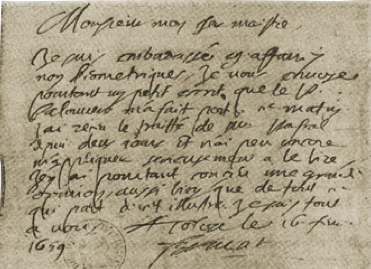 Monsieur mon cher maistre
Je suis embarassé en affaires
non Geometriques. Je vous envoye
pourtant un petit escrit que le P.
Lalouvere m'a fait ce matin
J'ai receu le traitté de Mr Pascal
depuis deux jours et n'ai peu encore
m'appliquer serieusement a le lire
J'en ai pourtant conceu une grande
opinion aussi bien que de tout ce
qui part d'illustre Je suis tout
a vous A Tolose le 16 fev.
1659 Fermat